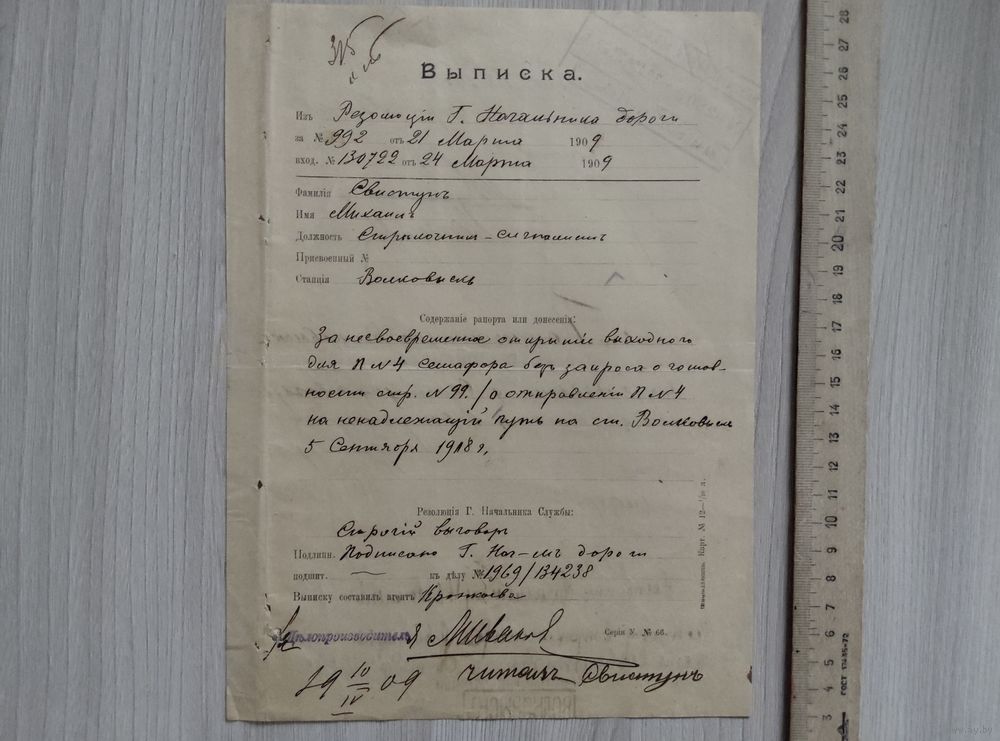 Выписка.
Изъ Резолюціи Г. Начальника дороги
за № 992 отъ 21 Марта 1909
вход. № 130722 отъ 24 Марта 1909
Фамилія Свистунъ
Имя Михаилъ
Должность Стрѣлочникъ-сигналистъ
Присвоенный №
Станція Волковыскъ
Содержаніе рапорта или донесенія:
За несвоевременное открытіе выходного
для П №4 семафора безъ запроса о готов-
ности стр. №99. / о отправленіи П №4
на ненадлежащій путь на ст. Волковыскъ
5 Сентября 1908 г.
Резолюція Г. Начальника Службы:
Строгій выговоръ
Подлинн. Подписано Г. Нач-мъ дороги
подшит. — къ дѣлу № 1969/134238
Выписку составилъ агентъ
Дѣлопроизводитель
Серія У. № 66.
19 10/IV 09 читалъ Свистунъ
28
27
26
25
24
23
22
21
20
19
18
17
16
15
14
13
12
11
10
9
8
7
6
5
4
3